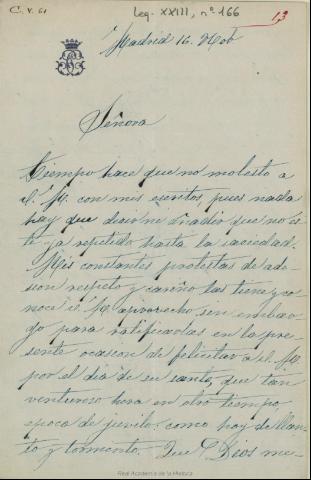 C. V. 61
Leg. XXIII, nº 166
13
Madrid 16. Nob
Señora
Tiempo hace que no molesto a
V. M. con mis escritos, pues nada
hay que decir ni añadir que no es-
te ya repetido hasta la saciedad.
Mis constantes protestas de ade-
sion respeto y cariño las tiene y co-
noce V. M. aprovecho sin embar
go para ratificarlas en la pre
sente ocasion de felicitar a V. M.
por el dia de su santo, que tan
venturoso hera en otro tiempo,
epoca de jubilo, como hoy de llan-
to y tormento. Que Dios me-
Real Academia de la Historia